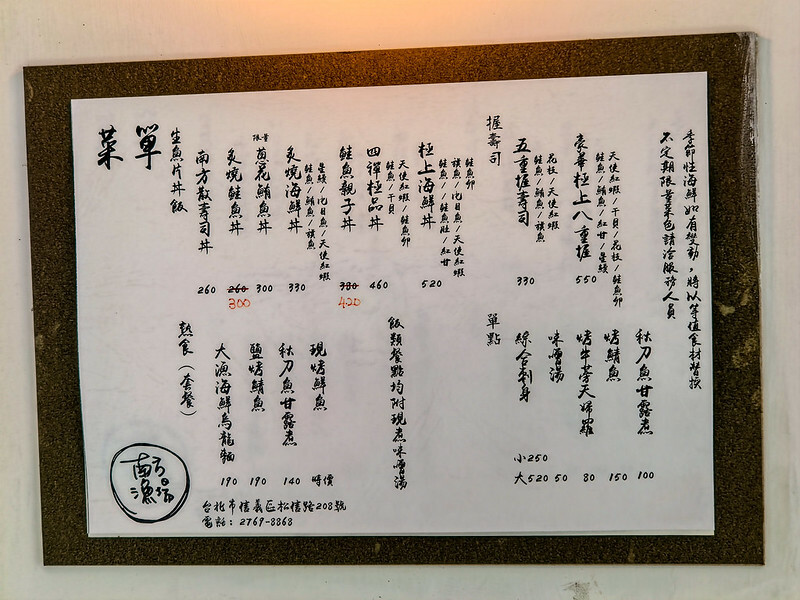 菜單
生魚片丼飯
南方散壽司丼 260
炙燒鮭魚丼 260 300
限量
蔥花鮪魚丼 300
炙燒海鮮丼 330
鮭魚/鮪魚/旗魚
星鰻/比目魚/天使紅蝦
鮭魚親子丼 380 420
四禪極品丼 460
鮭魚/干貝
天使紅蝦/鮭魚卵
極上海鮮丼 520
鮭魚/鮭魚肚/紅甘
旗魚/比目魚/天使紅蝦
鮭魚卵
握壽司
五重握壽司 330
鮭魚/鮪魚/旗魚
花枝/天使紅蝦
豪華極上八重握 550
鮭魚/鮪魚/紅甘/星鰻
天使紅蝦/干貝/花枝/鮭魚卵
季節性海鮮如有變動，將以等值食材替換
不定期限量菜色請洽服務人員
熱食(套餐)
大漁海鮮烏龍麵 190
鹽烤鯖魚 190
秋刀魚甘露煮 140
現烤鮮魚 時價
飯類餐點均附現煮味噌湯
單點
綜合刺身 小250 大520
味噌湯 50
烤牛蒡天婦羅 80
烤鯖魚 150
秋刀魚甘露煮 100
南方漁場
台北市信義區松信路208號
電話：2769-8868